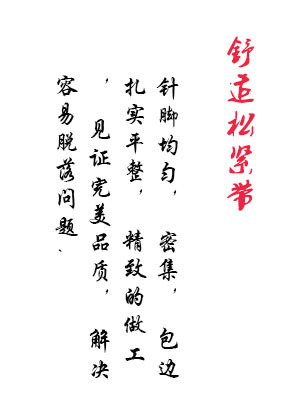 舒适松紧带
针脚均匀，密集，包边
扎实平整，精致的做工
，见证完美品质，解决
容易脱落问题、